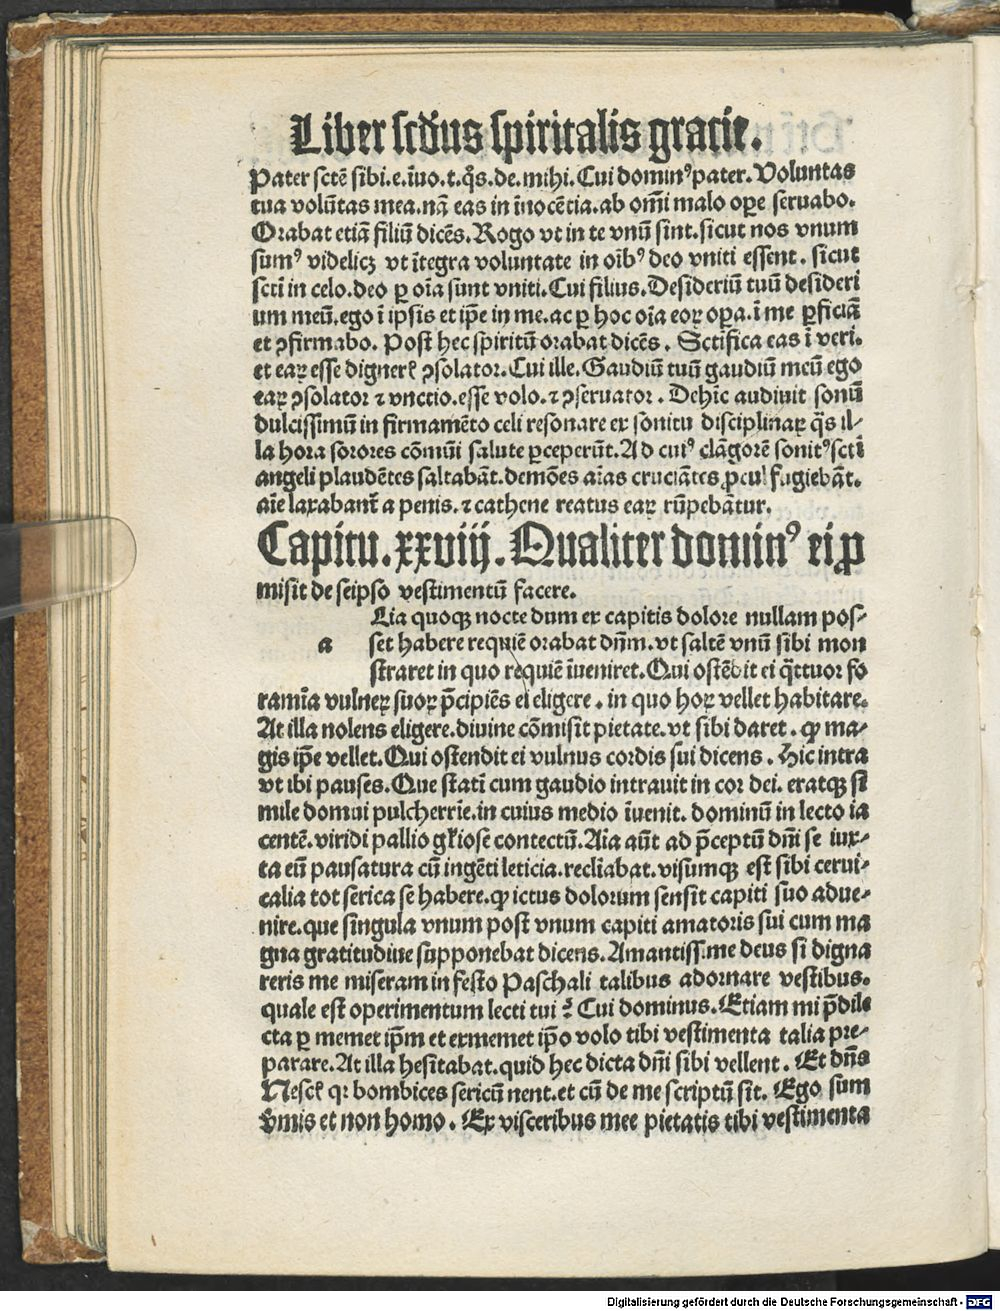 Liber scd̄us spiritalis gracie.
Pater sctē sibi.e.īuo.t.q̊s.de.mihi.Cui dominꝰ pater.Voluntas
tua volūtas mea.nā eas in inocētia.ab om̄i malo oꝑe seruabo.
Orabat etiā filiū dicēs.Rogo vt in te vnū sint.sicut nos vnum
sumꝰ videlicꝫ vt ītegra voluntate in oībꝰ deo vniti essent.sicut
scti in celo.deo ꝑ oīa sunt vniti.Cui filius.Desideriū tuū desideri
um meū.ego ī ipsis et ip̄e in me.ac ꝑ hoc oīa eoꝝ oꝑa.ī me ꝑficiā
et ꝯfirmabo.Post hec spiritū orabat dicēs.Sctīfica eas ī veri.
et eaꝝ esse digneꝛꝭ ꝯsolator.Cui ille.Gaudiū tuū gaudiū meū ego
eaꝝ ꝯsolator ⁊ vnctio.esse volo.⁊ ꝯseruator.Dehīc audiuit sonū
dulcissimū in firmamēto celi resonare ex sonitu disciplinaꝝ q̄s il⸗
la hora sorores cōmūi salute ꝑceperūt.Ad cuiꝰ clāgorē sonitꝰ scti
angeli plaudētes saltabāt.demōes aīas cruciātes ꝓcul fugiebāt.
aīe laxabant̄ a penis.⁊ cathene reatus eaꝝ rūpebātur.
Capitu.xxviij.Qualiter dominꝰ ei ꝓ
misit de seipso vestimentū facere.
Lia quoqꝫ nocte dum ex capitis dolore nullam pos⸗
a set habere requiē orabat dn̄m.vt saltē vnū sibi mon
straret in quo requiē īueniret.Qui ostēdit ei q̄ttuor fo
ramīa vulneꝝ suoꝝ p̄cipiēs ei eligere.in quo hoꝝ vellet habitare.
At illa nolens eligere.diuine cōmisit pietate.vt sibi daret.ꝙ ma⸗
gis ip̄e vellet.Qui ostendit ei vulnus cordis sui dicens.Hic intra
vt ibi pauses.Que statī cum gaudio intrauit in cor dei.eratqꝫ si
mile domui pulcherrīe.in cuius medio īuenit.dominū in lecto ia
centē.viridi pallio gl̄iose contectū.Aīa aūt ad p̄ceptū dn̄i se iux⸗
ta eū pausatura cū ingēti leticia.recliabat.visumqꝫ est sibi cerui⸗
calia tot serica se habere.ꝙ ictus dolorum sensit capiti suo adue⸗
nire.que singula vnum post vnum capiti amatoris sui cum ma
gna gratitudine supponebat dicens.Amantissime deus si digna
reris me miseram in festo Paschali talibus adornare vestibus.
quale est operimentum lecti tui? Cui dominus.Etiam mi p̄dile
cta ꝑ memet ip̄m et exmemet ip̄o volo tibi vestimenta talia pre⸗
parare.At illa hesitabat.quid hec dicta dn̄i sibi vellent.Et dn̄s
Nescꝭ qꝛ bombices sericū nent.et cū de me scriptū sit.Ego sum
v̄mis et non homo.Ex visceribus mee pietatis tibi vestimenta
Digitalisierung gefördert durch die Deutsche Forschungsgemeinschaft - DFG